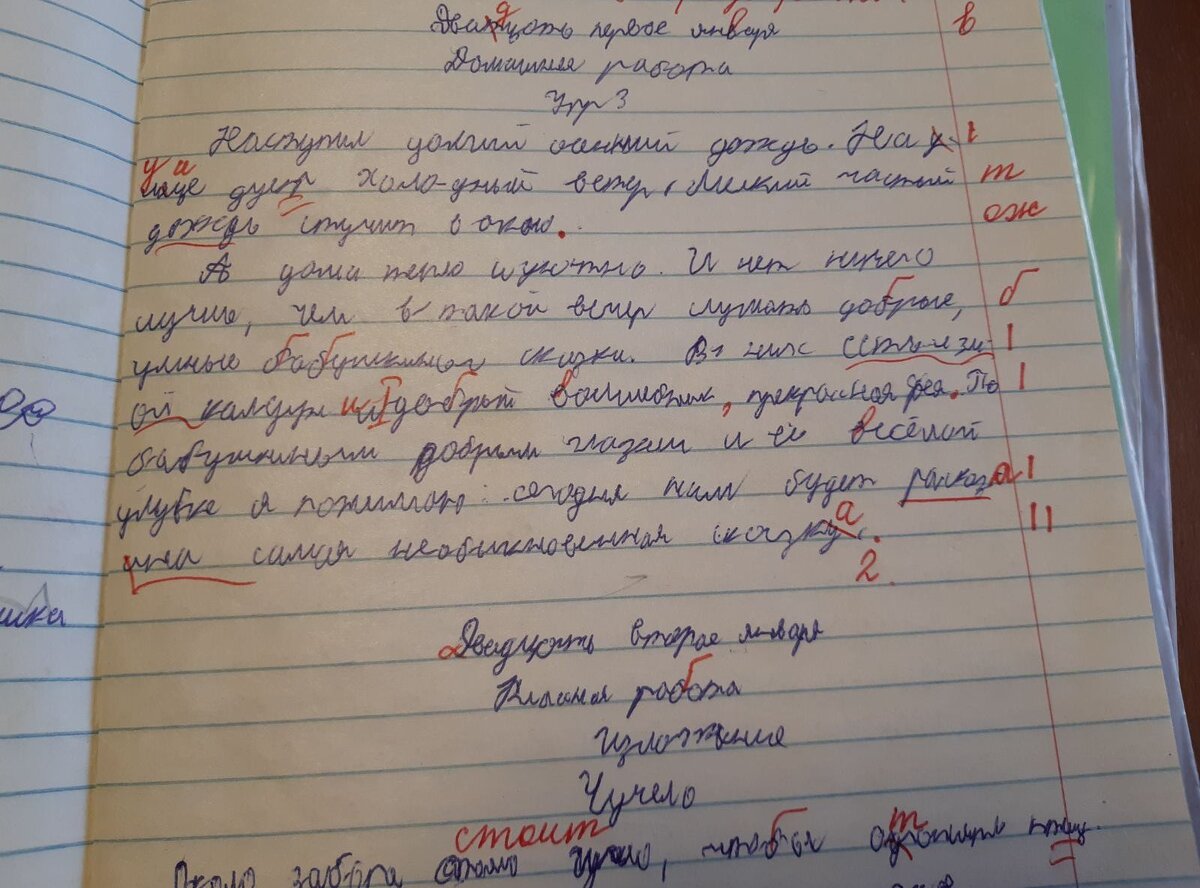 Двадцать первое января в
Домашняя работа
Упр 3
Наступил долгий осенний дождь. На у- 1
лице дует холодный ветер. Мелкий частый т
дождь стучит в окно. ож
А дома тепло и уютно. И нет ничего
лучше, чем в такой вечер слушать добрые, б
умные бабушкины сказки. В них есть и зл- 1
ой колдун и добрый волшебник, прекрасная фея. По 1
бабушкиным добрым глазам и её весёлой
улыбке я понимаю: сегодня нам будет расказа 1
нна самая необыкновенная сказка. 11
2.
шка
Двадцать второе января
Класная работа
Изложение
Чучело
стоит
Около забора стояло чучело, чтобы отгонять птиц.